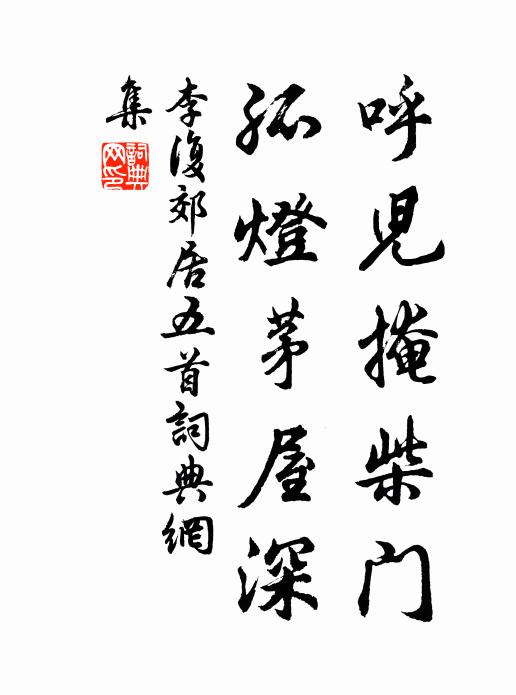 呼児掩柴门
孤燈茅屋深
李復郊居五首詞典網
集
詞典網印